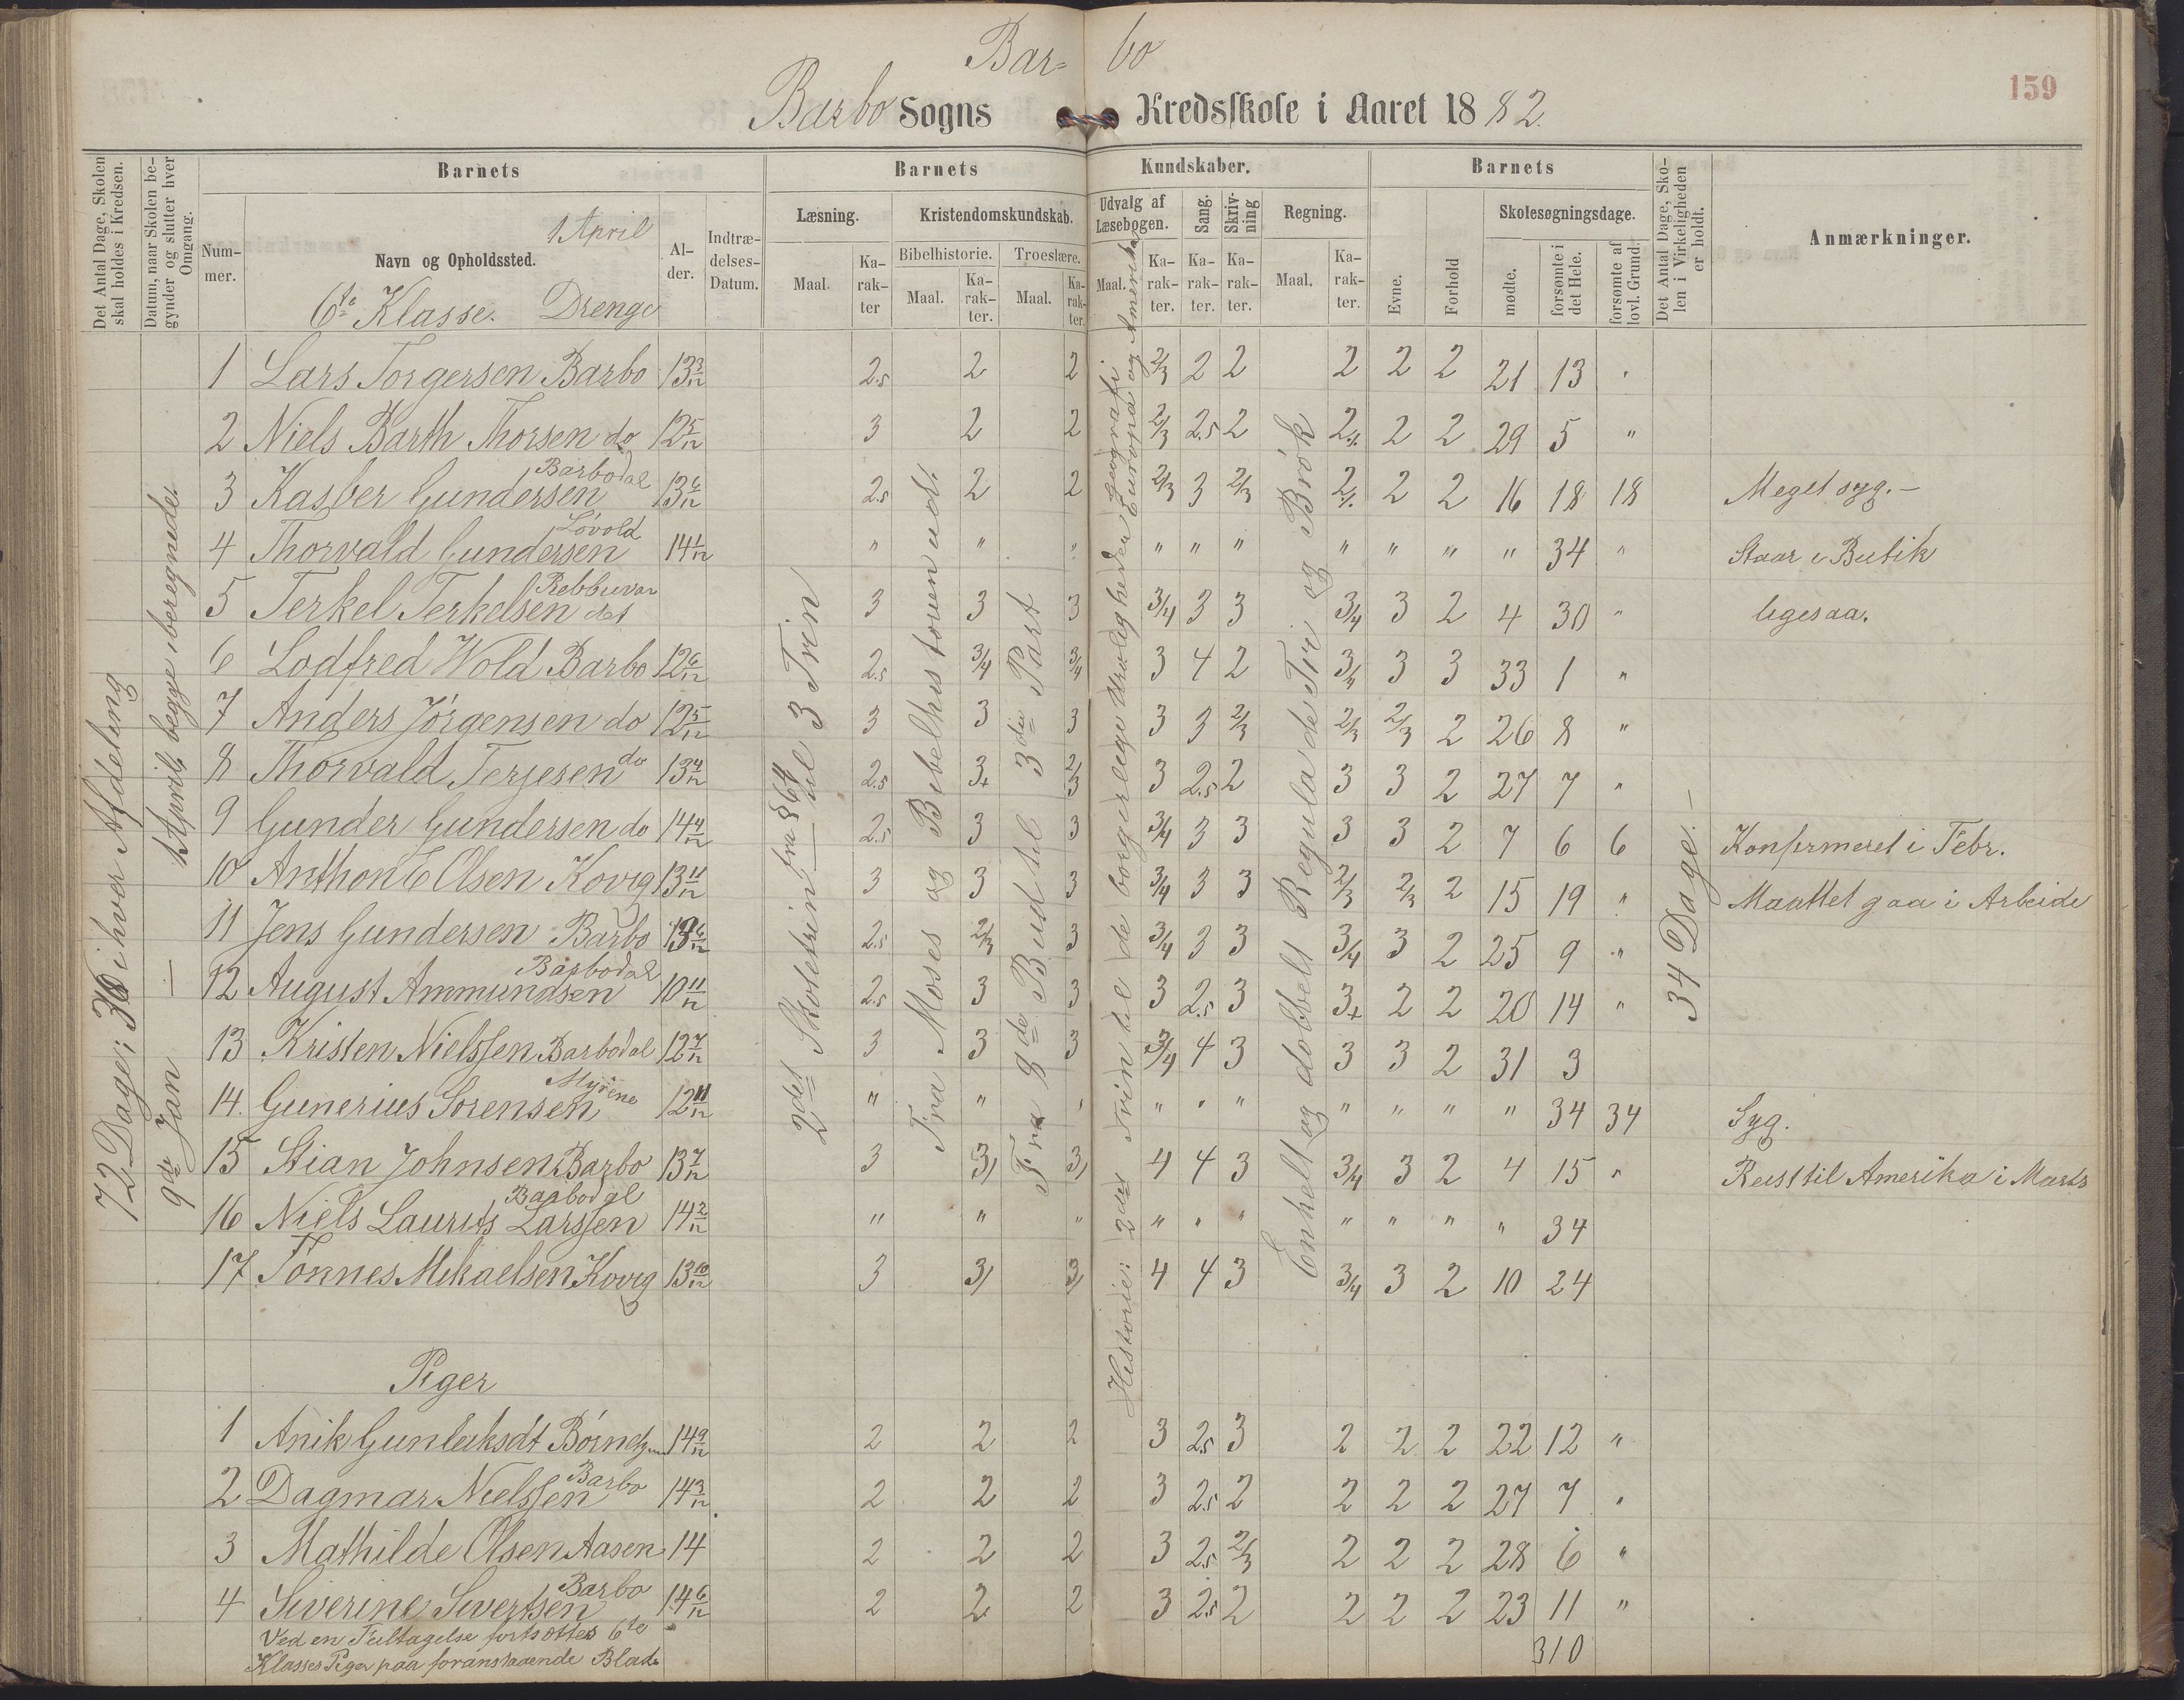 Bar= bo
159
Barbo Sogns Kredsskole i Aaret 1882.
Det Antal Dage, Skolen skal holdes i Kredsen.
Datum, naar Skolen begynder og slutter hver Omgang.
Barnets
Barnets Kundskaber.
Barnets
Det Antal Dage, Skolen i Virkeligheden er holdt.
Anmærkninger.
Nummer.
Navn og Opholdssted.
1 April
6te Klasse. Drenge
Alder.
Indtrædelses-Datum.
Læsning.
Kristendomskundskab.
Udvalg af Læsebogen.
Sang.
Skrivning
Regning.
Evne.
Forhold
Skolesøgningsdage.
Bibelhistorie.
Troeslære.
Maal. Karakter
Maal. Karakter.
Maal. Karakter.
Maal. Karakter.
Karakter.
Karakter.
Maal. Karakter.
mødte.
forsømte i det Hele.
forsømte af lovl. Grund.
72 Dage: 36 i hver Afdeling
9de Jan — 1 April begge iberegnede.
2det Skoletrin fra § 64 til 3 Trin
Fra Moses og Bibelhistorien ud.
Fra 8de Bud til 3die Part
Historie: 2det Trin til de borgerlige Uroligheder geografi Europa og Amerika
Enkelt og dobbelt Regula de Tri og Brök
34 Dage. —
1 Lars Torgersen Barbo 13 3/12 2.5 2 2 2/3 2 2 2 2 2 21 13 "
2 Niels Barth Thorsen do 12 5/12 3 2 2 2/3 2.5 2 2 2 2 29 5 "
3 Kasber Gundersen Barbodal 13 6/12 2.5 2 2 2/3 3 2/3 2 2 2 16 18 18 Meget syg. —
4 Thorvald Gundersen Lövold 14 1/12 " " " " " " " " " " 34 " Staar i Butik
5 Terkel Terkelsen Rebbuvor 3 3 3 3/4 3 3 3/4 3 2 4 30 " ligesaa.
6 Lodfred Wold Barbo 12 6/12 2.5 3/4 3/4 3 4 2 3/4 3 3 33 1 "
7 Anders Jörgensen do 12 5/12 3 3 3 3 3 2/3 2/3 2/3 2 26 8 "
8 Thorvald Terjesen do 13 4/12 2.5 3+ 2/3 3 2.5 2 3 3 2 27 7 "
9 Gunder Gundersen do 14 4/12 2.5 3 3 3/4 3 3 3 3 2 7 6 6 Konfirmeret i Febr.
10 Anthon E Olsen Kovig 13 11/12 3 3 3 3/4 3 3 2/3 2/3 2 15 19 " Maattet gaa i Arbeide
11 Jens Gundersen Barbo 13 6/12 2.5 2/3 3 3/4 3 3 3/4 3 2 25 9 "
12 August Ammundsen Barbodal 10 11/12 2.5 3 3 3 2.5 3 3+ 2 2 20 14 "
13 Kristen Nielssen Barbodal 12 7/12 3 3 3 3/4 4 3 3 3 2 31 3
14. Gunerius Sorensen Myrene 12 11/12 " " " " " " " " " " 34 34 Syg.
15 Stian Johnsen Barbo 13 7/12 3 3/ 3/ 4 4 3 3/4 3 2 4 15 " Reist til Amerika i Marts
16 Niels Laurits Larssen Barbodal 14 2/12 " " " " " " " " " " 34
17 Tönnes Mikaelsen Kovig 13 10/12 3 3/ 3/ 4 4 3 3/4 3 2 10 24
Piger
1 Anik Gunleiksdt 14 9/12 2 2 2 3 2.5 3 2 2 2 22 12 "
2 Dagmar Nielssen Barbo 14 3/12 2 2 2 3 2.5 2 2 2 2 27 7 "
3 Mathilde Olsen Aasen 14 2 2 2 3 2.5 2/3 2 2 2 28 6 "
4 Siverine Sivertsen Barbo 14 6/12 2 2 2 3 2.5 2 2 2 2 23 11 "
Ved en Feiltagelse fortsættes 6te
Klasses Piger paa foranstaaende Blad
310